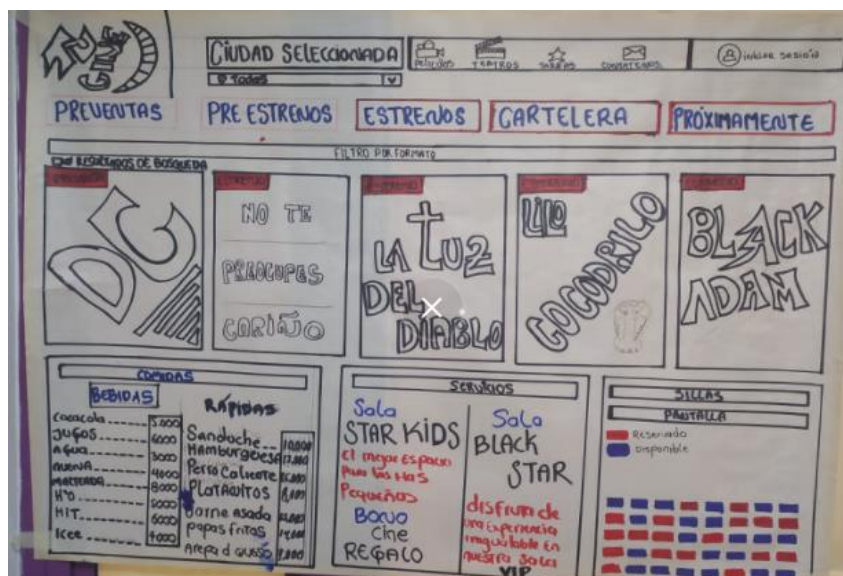 CINE
CIUDAD SELECCIONADA
Todas
PELICULAS
TEATROS
INICIAR SESIÓN
PREVENTAS
PRE ESTRENOS
ESTRENOS
CARTELERA
PRÓXIMAMENTE
FILTRO POR FORMATO
RESULTADOS DE BOSQUEDA
DC
NO TE
PREOCUPES
CARIÑO
LA LUZ
DEL
DIABLO
LILO
COCODRILO
BLACK
ADAM
COMIDAS
BEBIDAS
Cocacola 5.000
JUGOS 6000
Agua 3000
4000
MALTEADA 8000
H2O 5000
HIT 6000
Icee 4000
RÁPIDAS
Sanduche 10.000
HAMBURGUESA
Perro Caliente
PLATANITOS
Carne asada
Papas fritas
Arepa d queso
SERVICIOS
Sala
STAR KIDS
El mejor Espacio
para los Mas
Pequeños
BONO
Cine
REGALO
Sala
BLACK
STAR
disfruta de
una Experiencia
inigualable En
nuestra Sala
VIP
SILLAS
PANTALLA
Reservado
Disponible